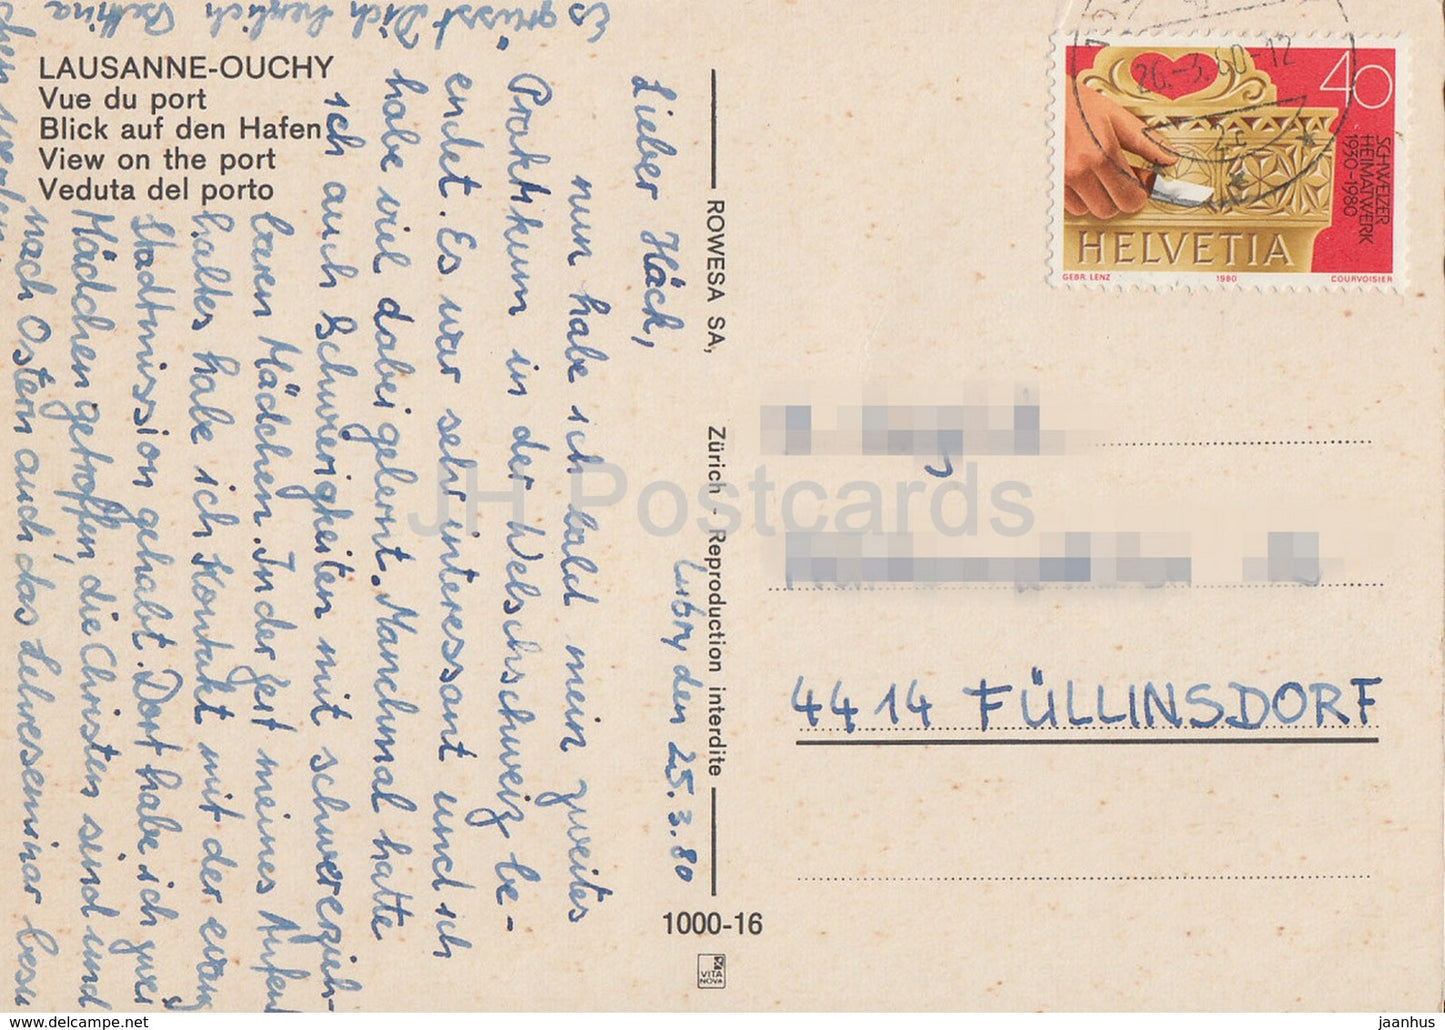 LAUSANNE-OUCHY
Vue du port
Blick auf den Hafen
View on the port
Veduta del porto
Lutry den 25.3.80
Lieber Häck,
nun habe ich bald mein zweites
Praktikum in der Welschschweiz be-
endet. Es war sehr interessant und ich
habe viel dabei gelernt. Manchmal hatte
ich auch Schwierigkeiten mit schwererzieh-
baren Mädchen. In der Zeit meines Aufent
haltes habe ich Kontakt mit der evang
Stadtmission gehabt. Dort habe ich zwei
Mädchen getroffen, die Christen sind und
nach Ostern auch das Lehrerseminar besu
chen werden
Es grüsst Dich herzlich Bettina
ROWESA SA, Zürich - Reproduction interdite
1000-16
VITA
NOVA
26.-3.80-12
40
SCHWEIZER
HEIMATWERK
1930-1980
HELVETIA
GEBR. LENZ 1980 COURVOISIER
4414 FÜLLINSDORF
JH Postcards
https://www.ebay.com/usr/jaanhus